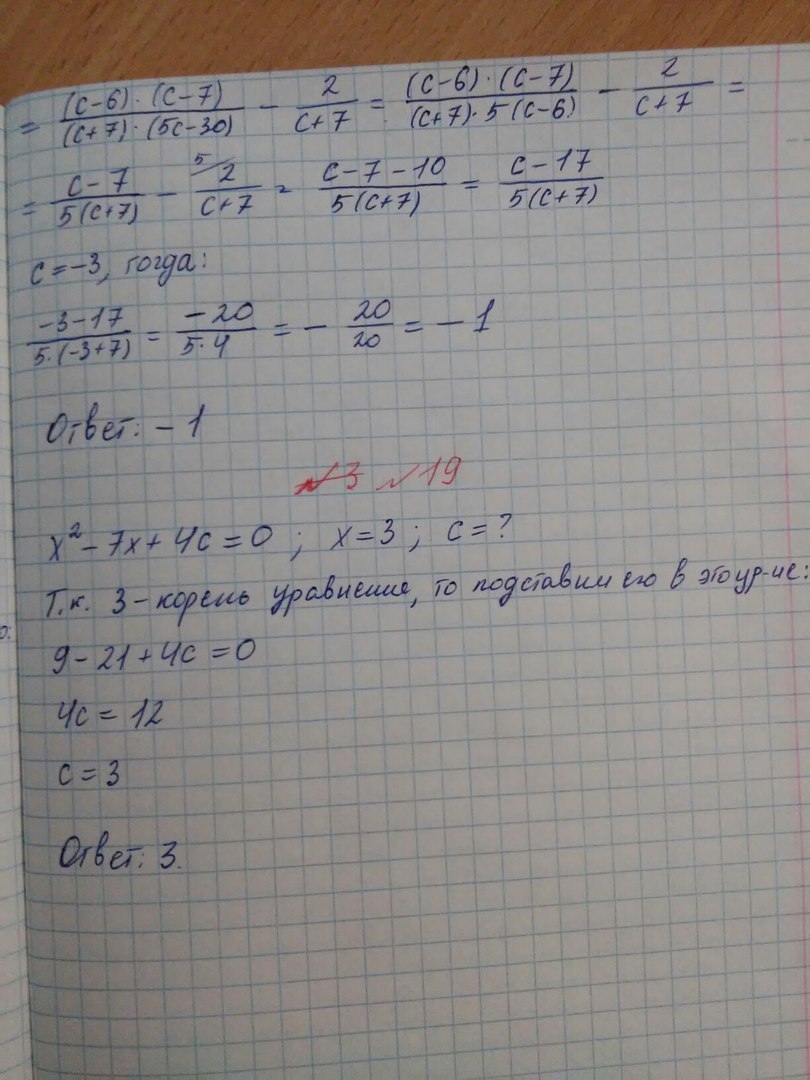 = (c-6)·(c-7)/(c+7)·(5c-30) - 2/c+7 = (c-6)·(c-7)/(c+7)·5(c-6) - 2/c+7 =
= c-7/5(c+7) - 5/ 2/c+7 = c-7-10/5(c+7) = c-17/5(c+7)
c=-3, тогда:
-3-17/5·(-3+7) = -20/5·4 = - 20/20 = -1
Ответ: -1
№3 №19
x²-7x+4c=0; x=3; c=?
Т.к. 3-корень уравнения, то подставим его в это ур-ие:
9-21+4c=0
4c=12
c=3
Ответ: 3.